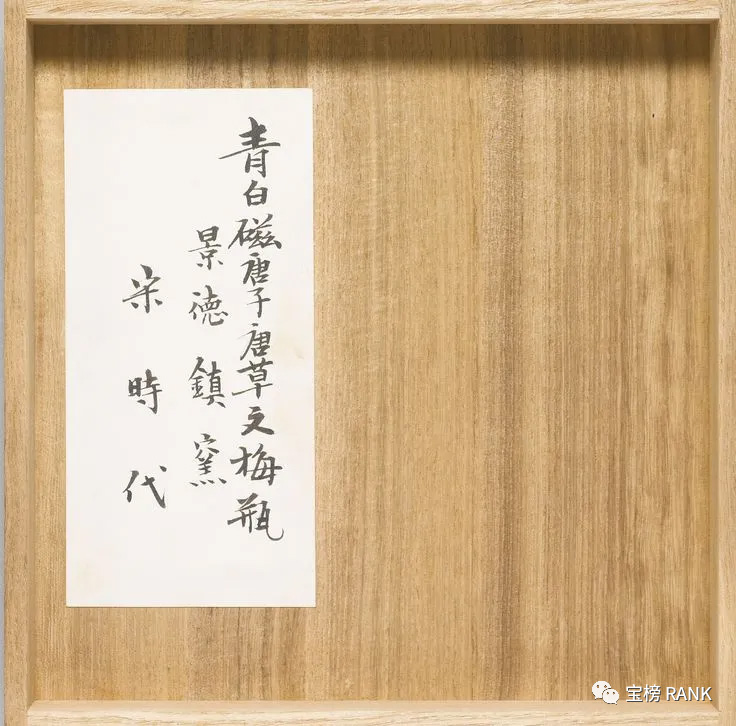 青白磁唐子唐草文梅瓶
景徳鎮窯
宋時代
宝榜 RANK